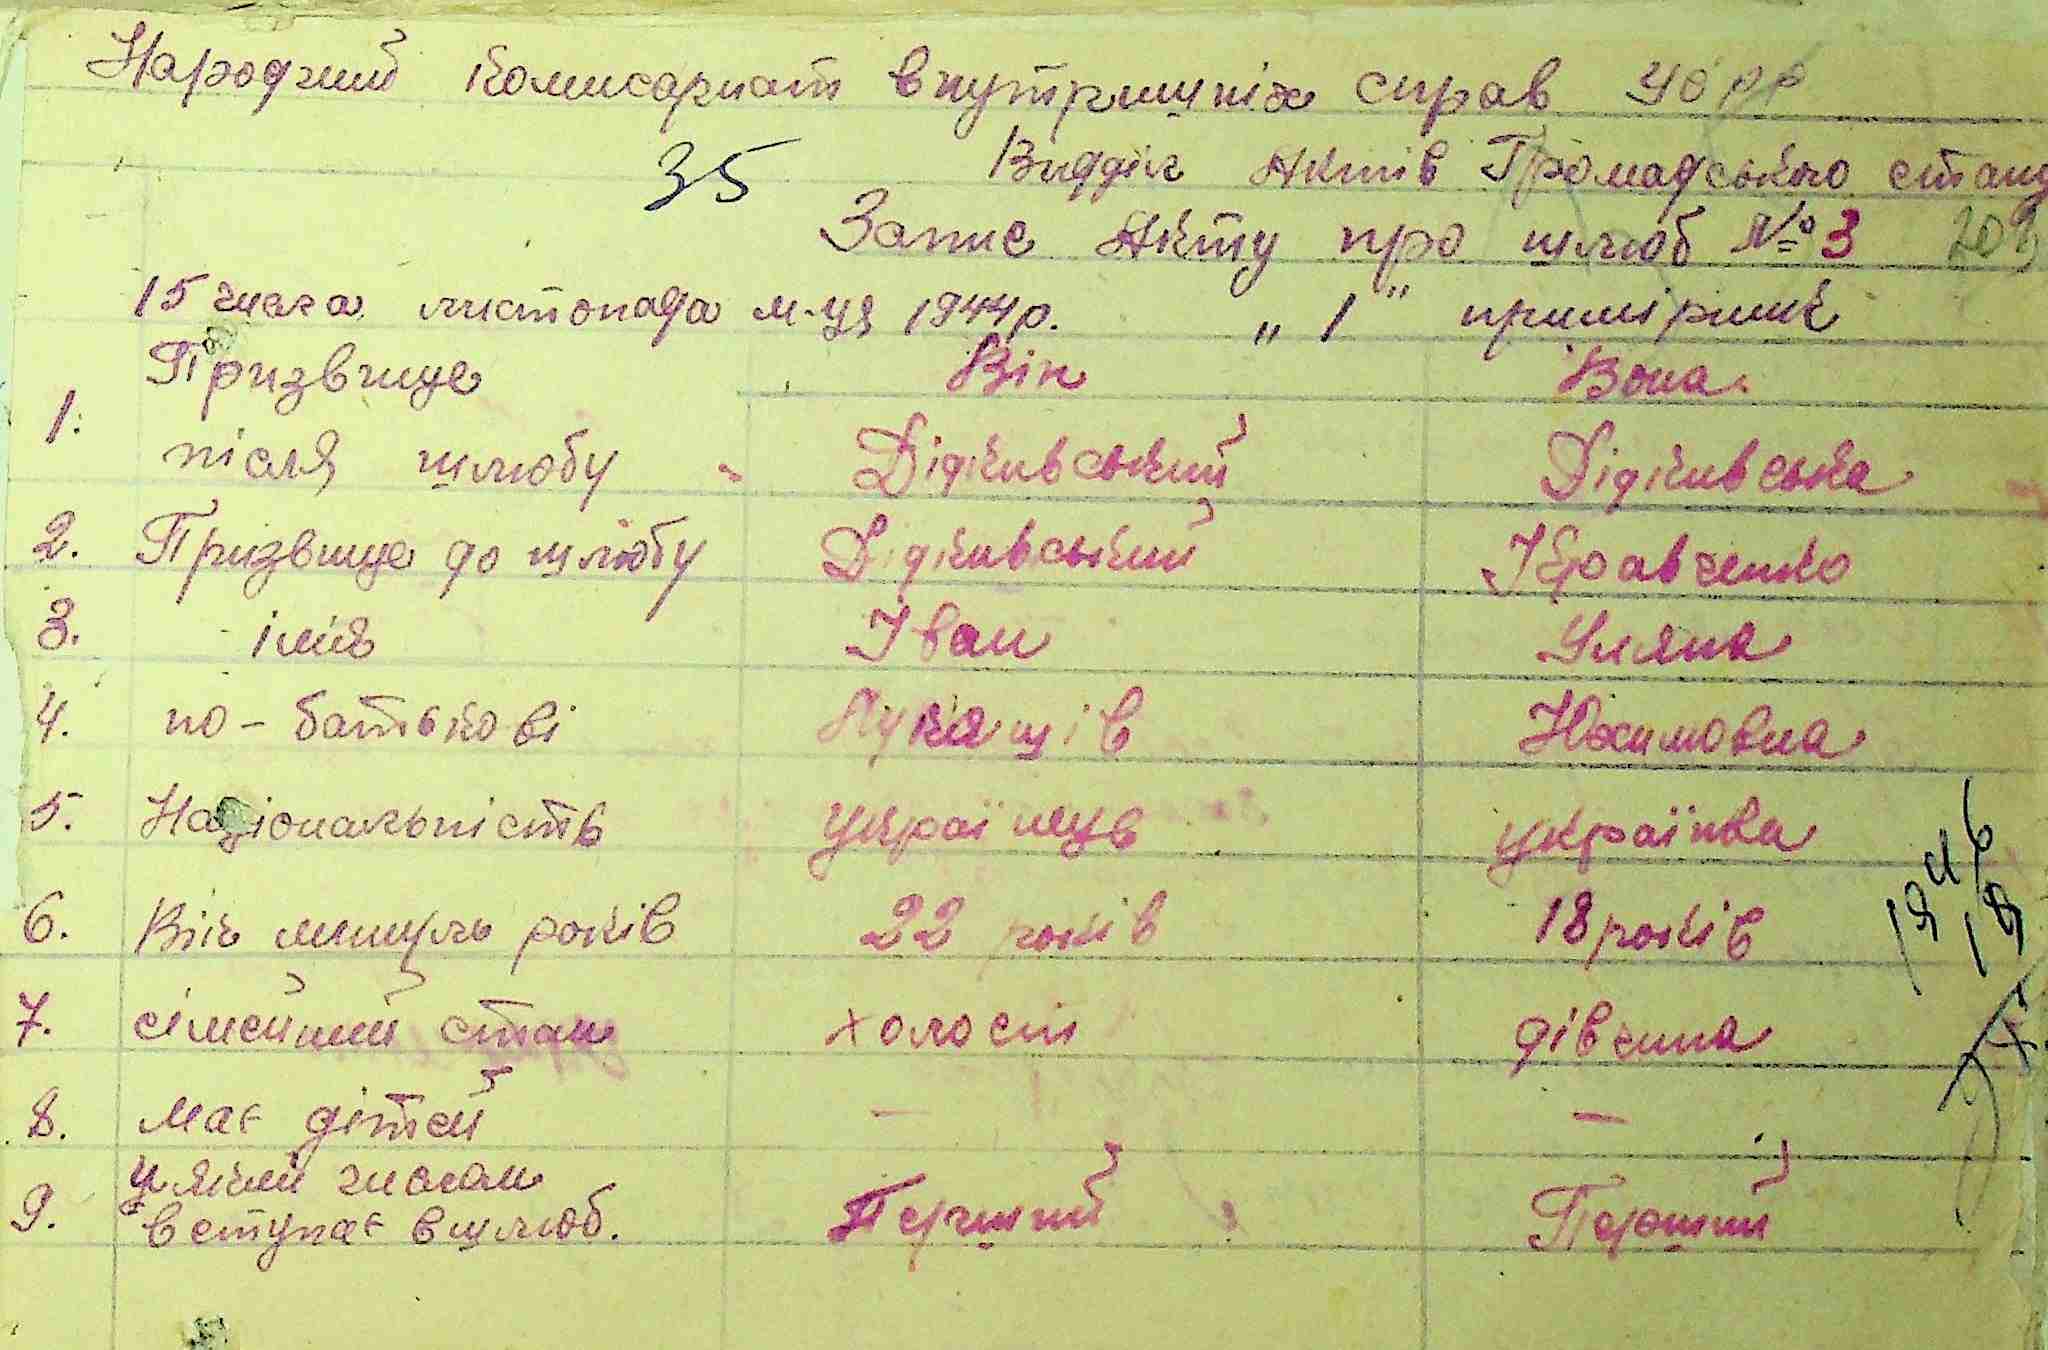 Народний Комисариат внутришніх справ УСРР
35 Виддил Актів Громадського стану
Запис Акту про шлюб № 3 203
15 числа листопада м-ця 1944 р. „ 1 " примірник
Призвище Він Вона
1. після шлюбу Дідкивський Дідкивська
2. Призвище до шлюбу Дідкивський Кравченко
3. імія Іван Уляна
4. по-батькові Лукашів Юхимовна
5. Національність українць українка
6. Вік минуль років 22 років 18 років
7. сімейний стан холост дівчина
8. має дітей — —
9. уякий числом
вступає в шлюб. Перший Перший